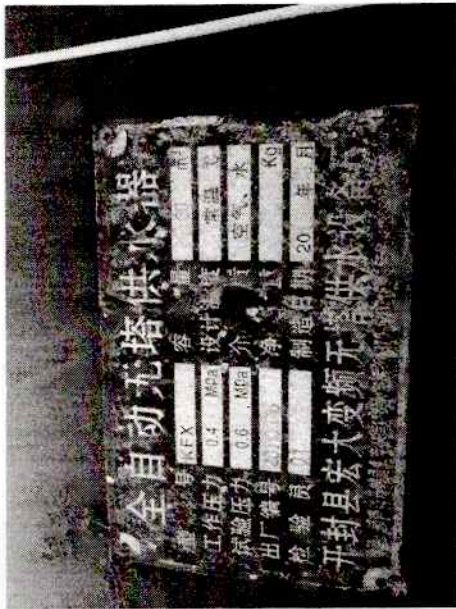 全自动无塔供水器
型号 KFX 容量
工作压力 0.4 MPa 设计温度 常温 ℃
试验压力 0.6 MPa 介质 空气、水
出厂编号 净重 Kg
检验员 01 制造日期 20 年 月
开封县宏大变频无塔供水设备厂